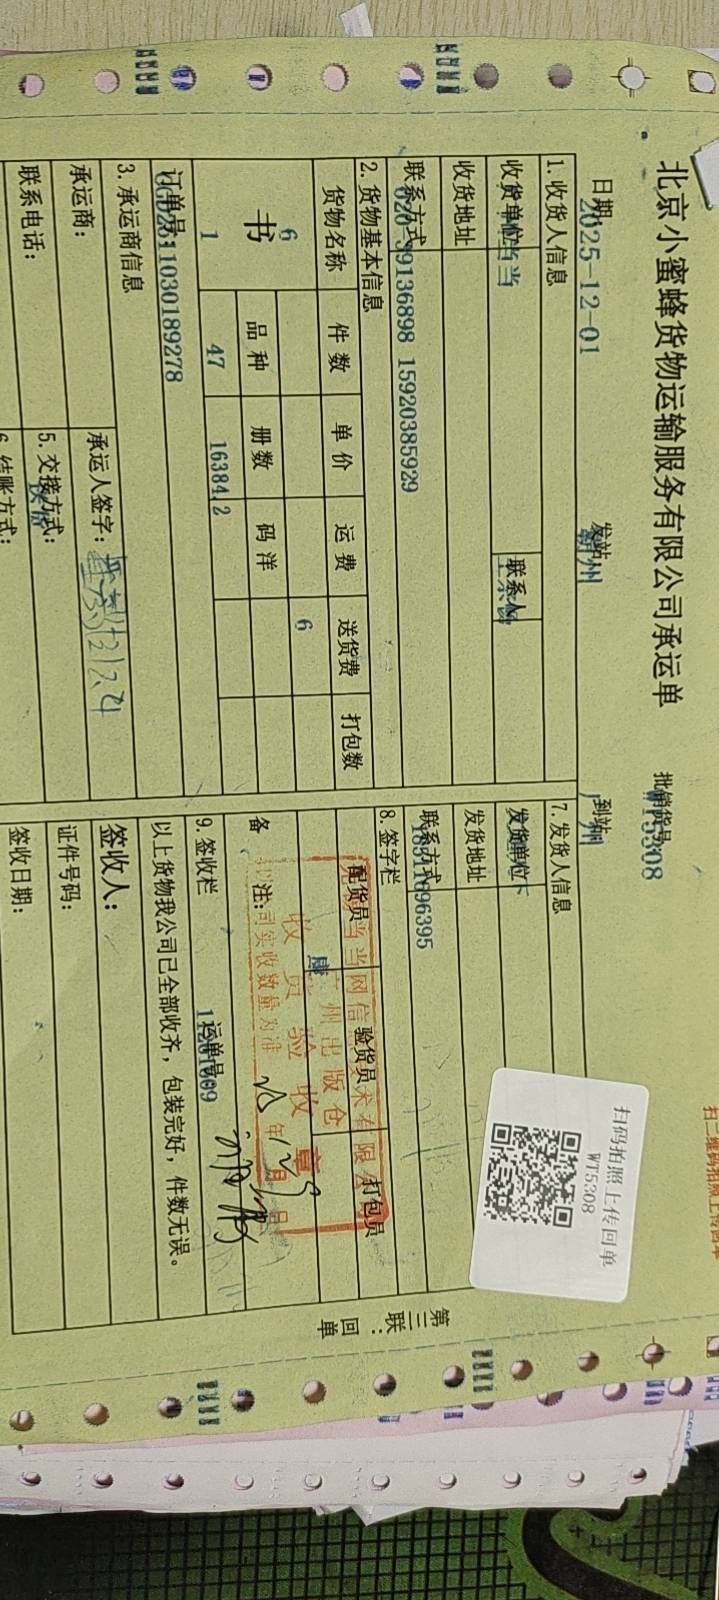 北京小蜜蜂货物运输服务有限公司承运单
批销货号
WT5308
日期
2025-12-01
发站
到站
1.收货人信息
收货单位
联系人
收货地址
联系方式
39136898 15920385929
2.货物基本信息
货物名称 件数 单价 运费 送货费 打包数
6
6
书
品种 册数 码洋
1 47 16384.2
订单号:
11030189278
3.承运商信息
承运商:
承运人签字:
联系电话:
5.交接方式:
6.结账方式:
7.发货人信息
发货单位
发货地址
联系方式
696395
8.签字栏
配货员 验货员 打包员
备注:
运单号
9.签收栏
以上货物我公司已全部收齐,包装完好,件数无误。
签收人:
证件号码:
签收日期:
当当网信
术有限
州出版仓
收货验收章
司实收数量为准
年 月 日
扫码拍照上传回单
WT5308
第三联:回单
扫二维码拍照上传回单